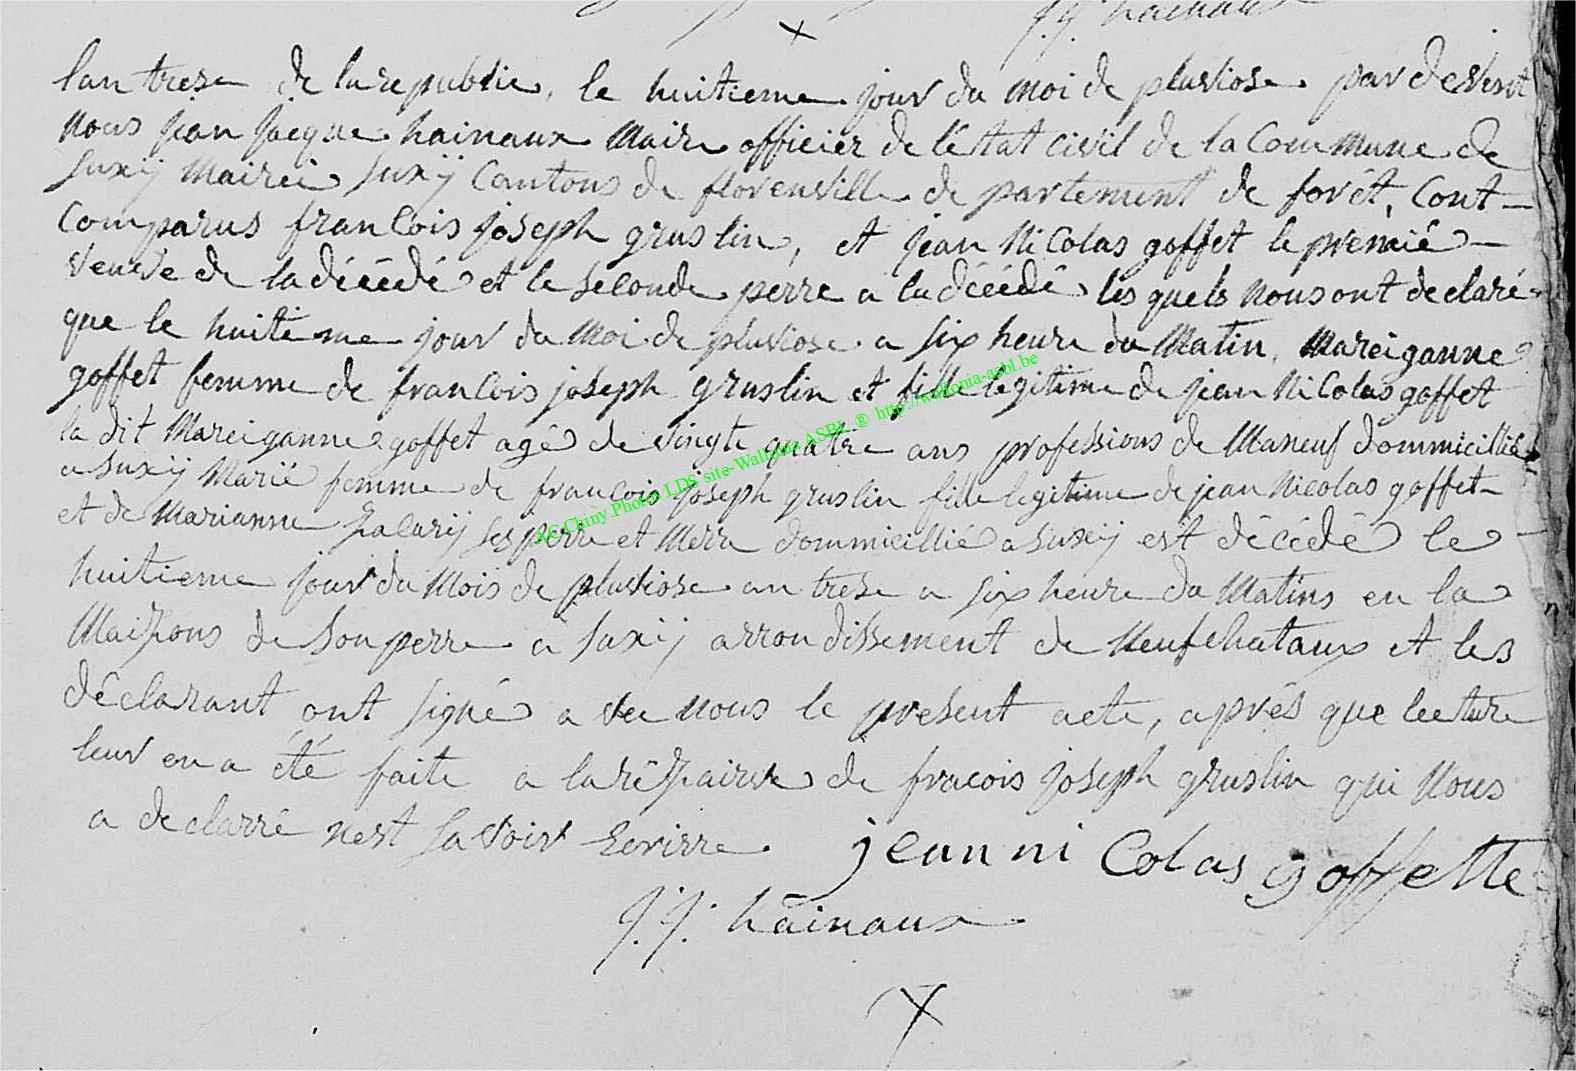 j.j. hainaux
lan treze de la republic, le huitieme jour du moi de pluviose par devent
nous jean jacque hainaux Maire officier de létat civil de la Commune de
Suxÿ Mairie Suxÿ Cantons de florenville de partement de forêt, Cont
Comparus francois joseph gruslin, et jean Nicolas goffet le premié
veuve de la décédé et le seconde perre a la décédé les quels nous ont declaré
que le huitieme jour du Moi de pluviose a six heure du Matin, Mareiganne
goffet femme de francois joseph gruslin et fille legitime de jean Nicolas goffet
la dit Mareiganne goffet agé de vingte quatre ans professions de Maneuf dommicillié
a Suxÿ Marié femme de francois joseph gruslin fille legitime de jean Nicolas goffet
et de Marianne Zacarÿ ses perre et Merre dommicillié a Suxÿ est décédé le
huitieme jour du Mois de pluviose an treze a six heure du Matins en la
Maizons de Son perre a Suxÿ arrondissement de Neufchataux et les
déclarant ont signé a vec nous le present acte, aprés que lecture
leur en a été faite a la réz̧airve de fracois joseph gruslin qui Nous
a declarré nest savoir Ecrirre. jean ni Colas goffette
j.j. hainaux
AC Chiny Photos LDS site-Wallonia ASBL ® http://wallonia-asbl.be